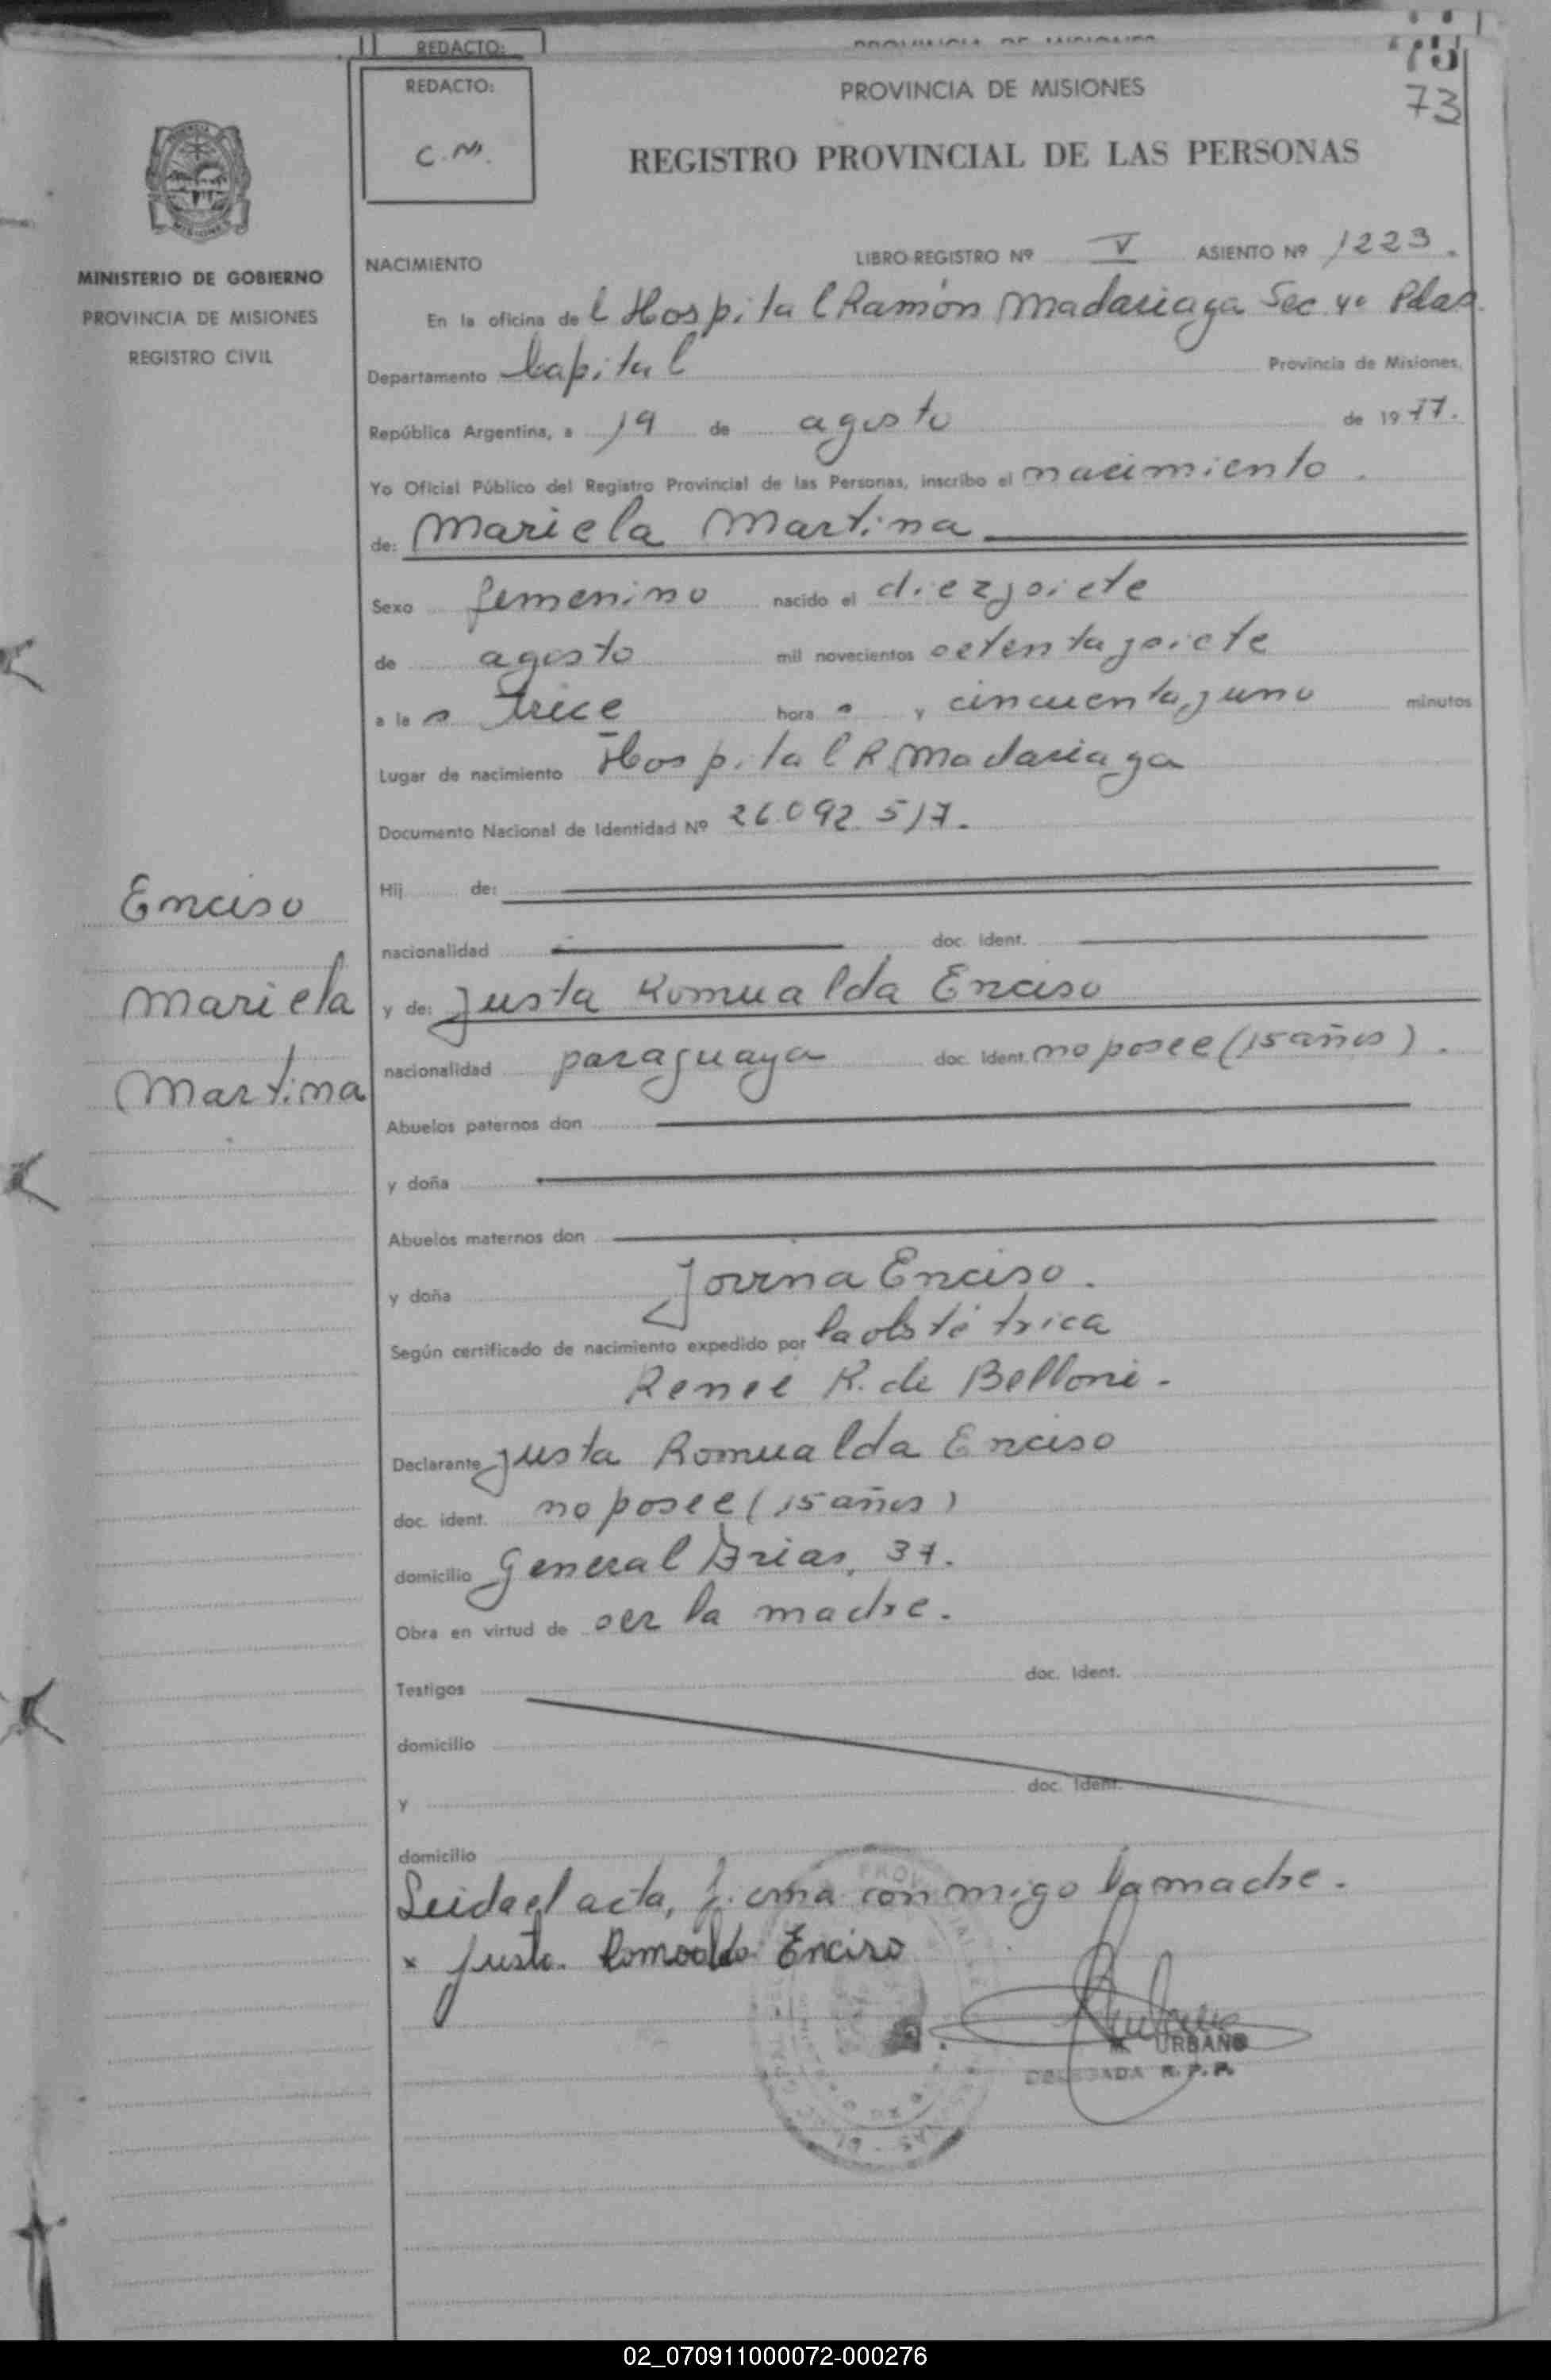 REDACTO:
PROVINCIA DE MISIONES
75
REDACTO:
C.M.
PROVINCIA DE MISIONES
73
REGISTRO PROVINCIAL DE LAS PERSONAS
MINISTERIO DE GOBIERNO
PROVINCIA DE MISIONES
REGISTRO CIVIL
NACIMIENTO LIBRO-REGISTRO Nº V ASIENTO Nº 1223.
En la oficina del Hospital Ramón Madariaga Sec 4º Pdas.
Departamento Capital Provincia de Misiones,
República Argentina, a 19 de agosto de 1977.
Yo Oficial Público del Registro Provincial de las Personas, inscribo el nacimiento.
de: Mariela Martina
Sexo femenino nacido el diezysiete
de agosto mil novecientos setentaysiete
a las trece horas y cincuentayuno minutos
Lugar de nacimiento Hospital R. Madariaga
Documento Nacional de Identidad Nº 26.092.517.
Hij de:
nacionalidad doc. Ident.
y de: Justa Romualda Enciso
nacionalidad paraguaya doc. Ident. no posee (15 años).
Abuelos paternos don
y doña
Abuelos maternos don
y doña Jovina Enciso.
Según certificado de nacimiento expedido por la obstétrica
Renee R. de Belloni.
Declarante Justa Romualda Enciso
doc. ident. no posee (15 años)
domicilio General Arias, 37.
Obra en virtud de ser la madre.
Testigos doc. Ident.
domicilio
y doc. Ident.
domicilio
Leida el acta, firma conmigo la madre.
x Justa Romoalda Enciso
URBANO
DELEGADA R.P.P.
Enciso
Mariela
Martina
02_070911000072-000276